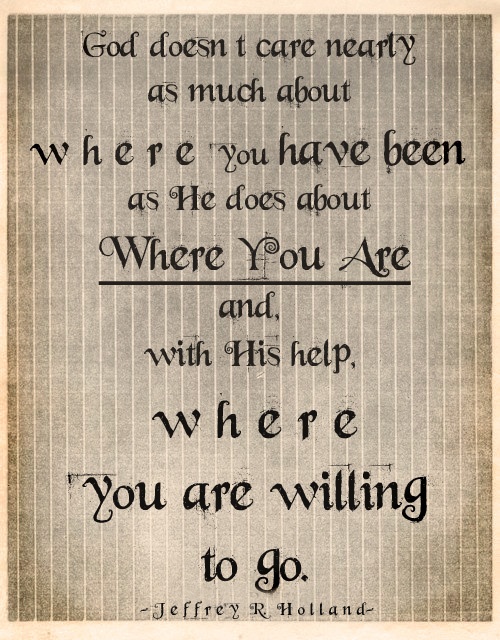 God doesn t care nearly
as much about
where you have been
as He does about
Where You Are
and,
with His help,
where
you are willing
to go.
~Jeffrey R Holland~